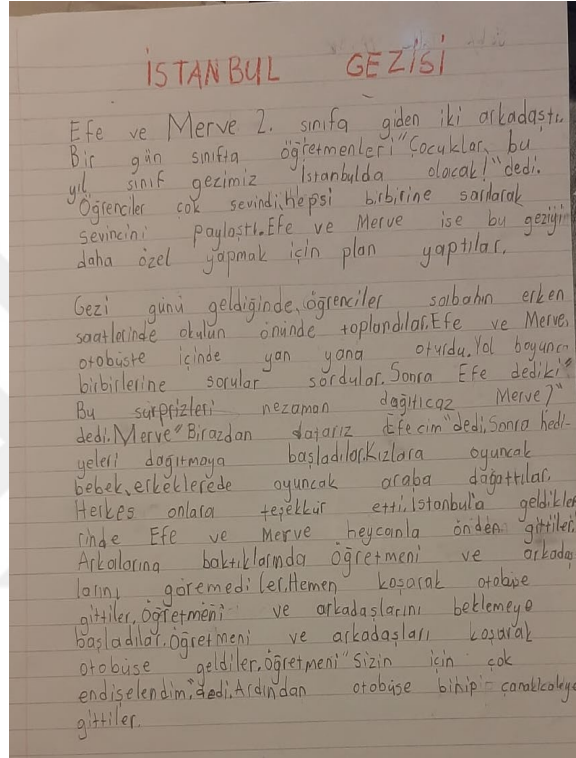 İSTANBUL GEZİSİ
Efe ve Merve 2. sınıfa giden iki arkadaştı.
Bir gün sınıfta öğretmenleri "Çocuklar, bu
yıl sınıf gezimiz İstanbulda olacak!" dedi.
Öğrenciler çok sevindi, Hepsi birbirine sarılarak
sevincini paylaştı. Efe ve Merve ise bu geziyi
daha özel yapmak için plan yaptılar.
Gezi günü geldiğinde, öğrenciler salbahın erken
saatlerinde okulun önünde toplandılar. Efe ve Merve,
otobüste içinde yan yana oturdu. Yol boyunca
birbirlerine sorular sordular. Sonra Efe dediki "
Bu sürprizleri nezaman dağıtıcaz Merve?"
dedi. Merve "Birazdan datarız Efecim" dedi. Sonra hedi-
yeleri dağıtmaya başladılar. Kızlara oyuncak
bebek, erkeklerede oyuncak araba dağattılar.
Herkes onlara teşekkür etti. İstanbul'a geldikle
rinde Efe ve Merve heycanla önden gittiler.
Arkalarına baktıklarında öğretmeni ve arkadaş
larını göremediler. Hemen koşarak otobüse
gittiler, Öğretmeni ve arkadaşlarını beklemeye
başladılar. Öğretmeni ve arkadaşları koşarak
otobüse geldiler. Öğretmeni "Sizin için çok
endişelendim." dedi. Ardından otobüse binip çanakkaleye
gittiler.